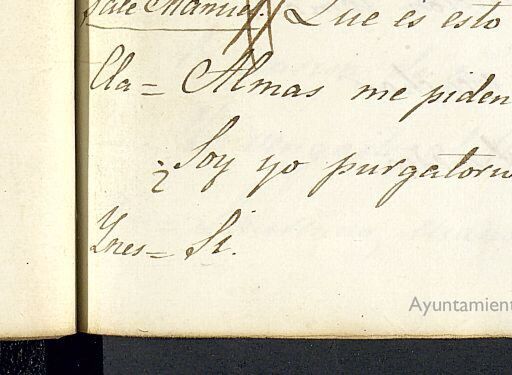 Sale Manuel. Que es esto
Cla= Almas me piden
¿Soy yo purgatorio
Ynes= Si.
Ayuntamient